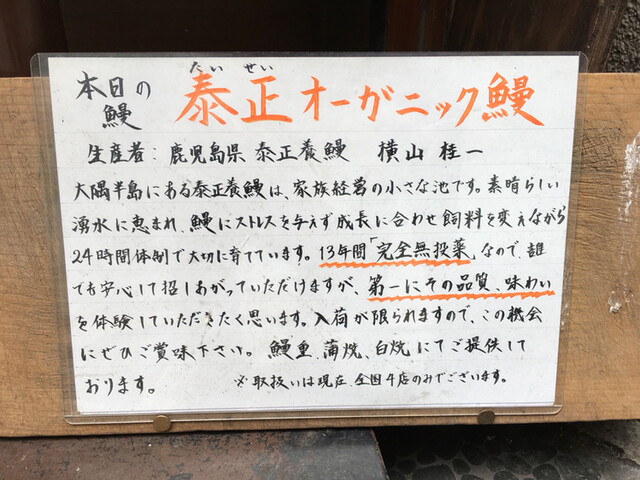 本日の鰻
たいせい
泰正オーガニック鰻
生産者：鹿児島県 泰正養鰻 横山 桂一
大隅半島にある泰正養鰻は、家族経営の小さな池です。素晴らしい
湧水に恵まれ、鰻にストレスを与えず成長に合わせ飼料を変えながら
24時間体制で大切に育てています。13年間「完全無投薬」なので、誰
でも安心して招しあがっていただけますが、第一にその品質、味わい
を体験していただきたく思います。入荷が限られますので、この機会
にぜひご賞味下さい。鰻重、蒲焼、白焼にてご提供して
おります。 ※取扱いは現在、全国4店のみでございます。